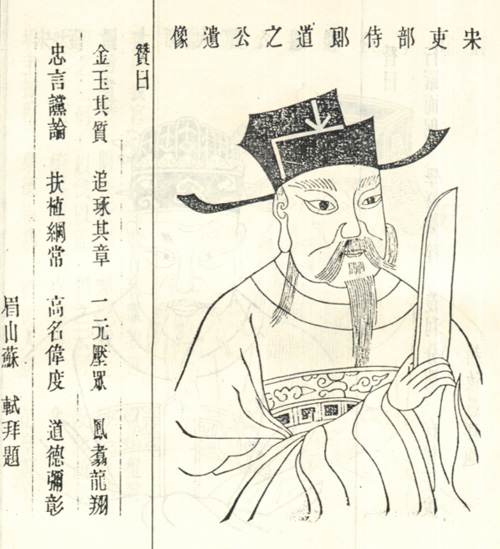 宋吏部侍郎道之公遺像
贊曰
金玉其質 追琢其章 一元壓眾 鳳翥龍翔
忠言讜論 扶植綱常 高名偉度 道德彌彰
眉山蘇 軾拜題